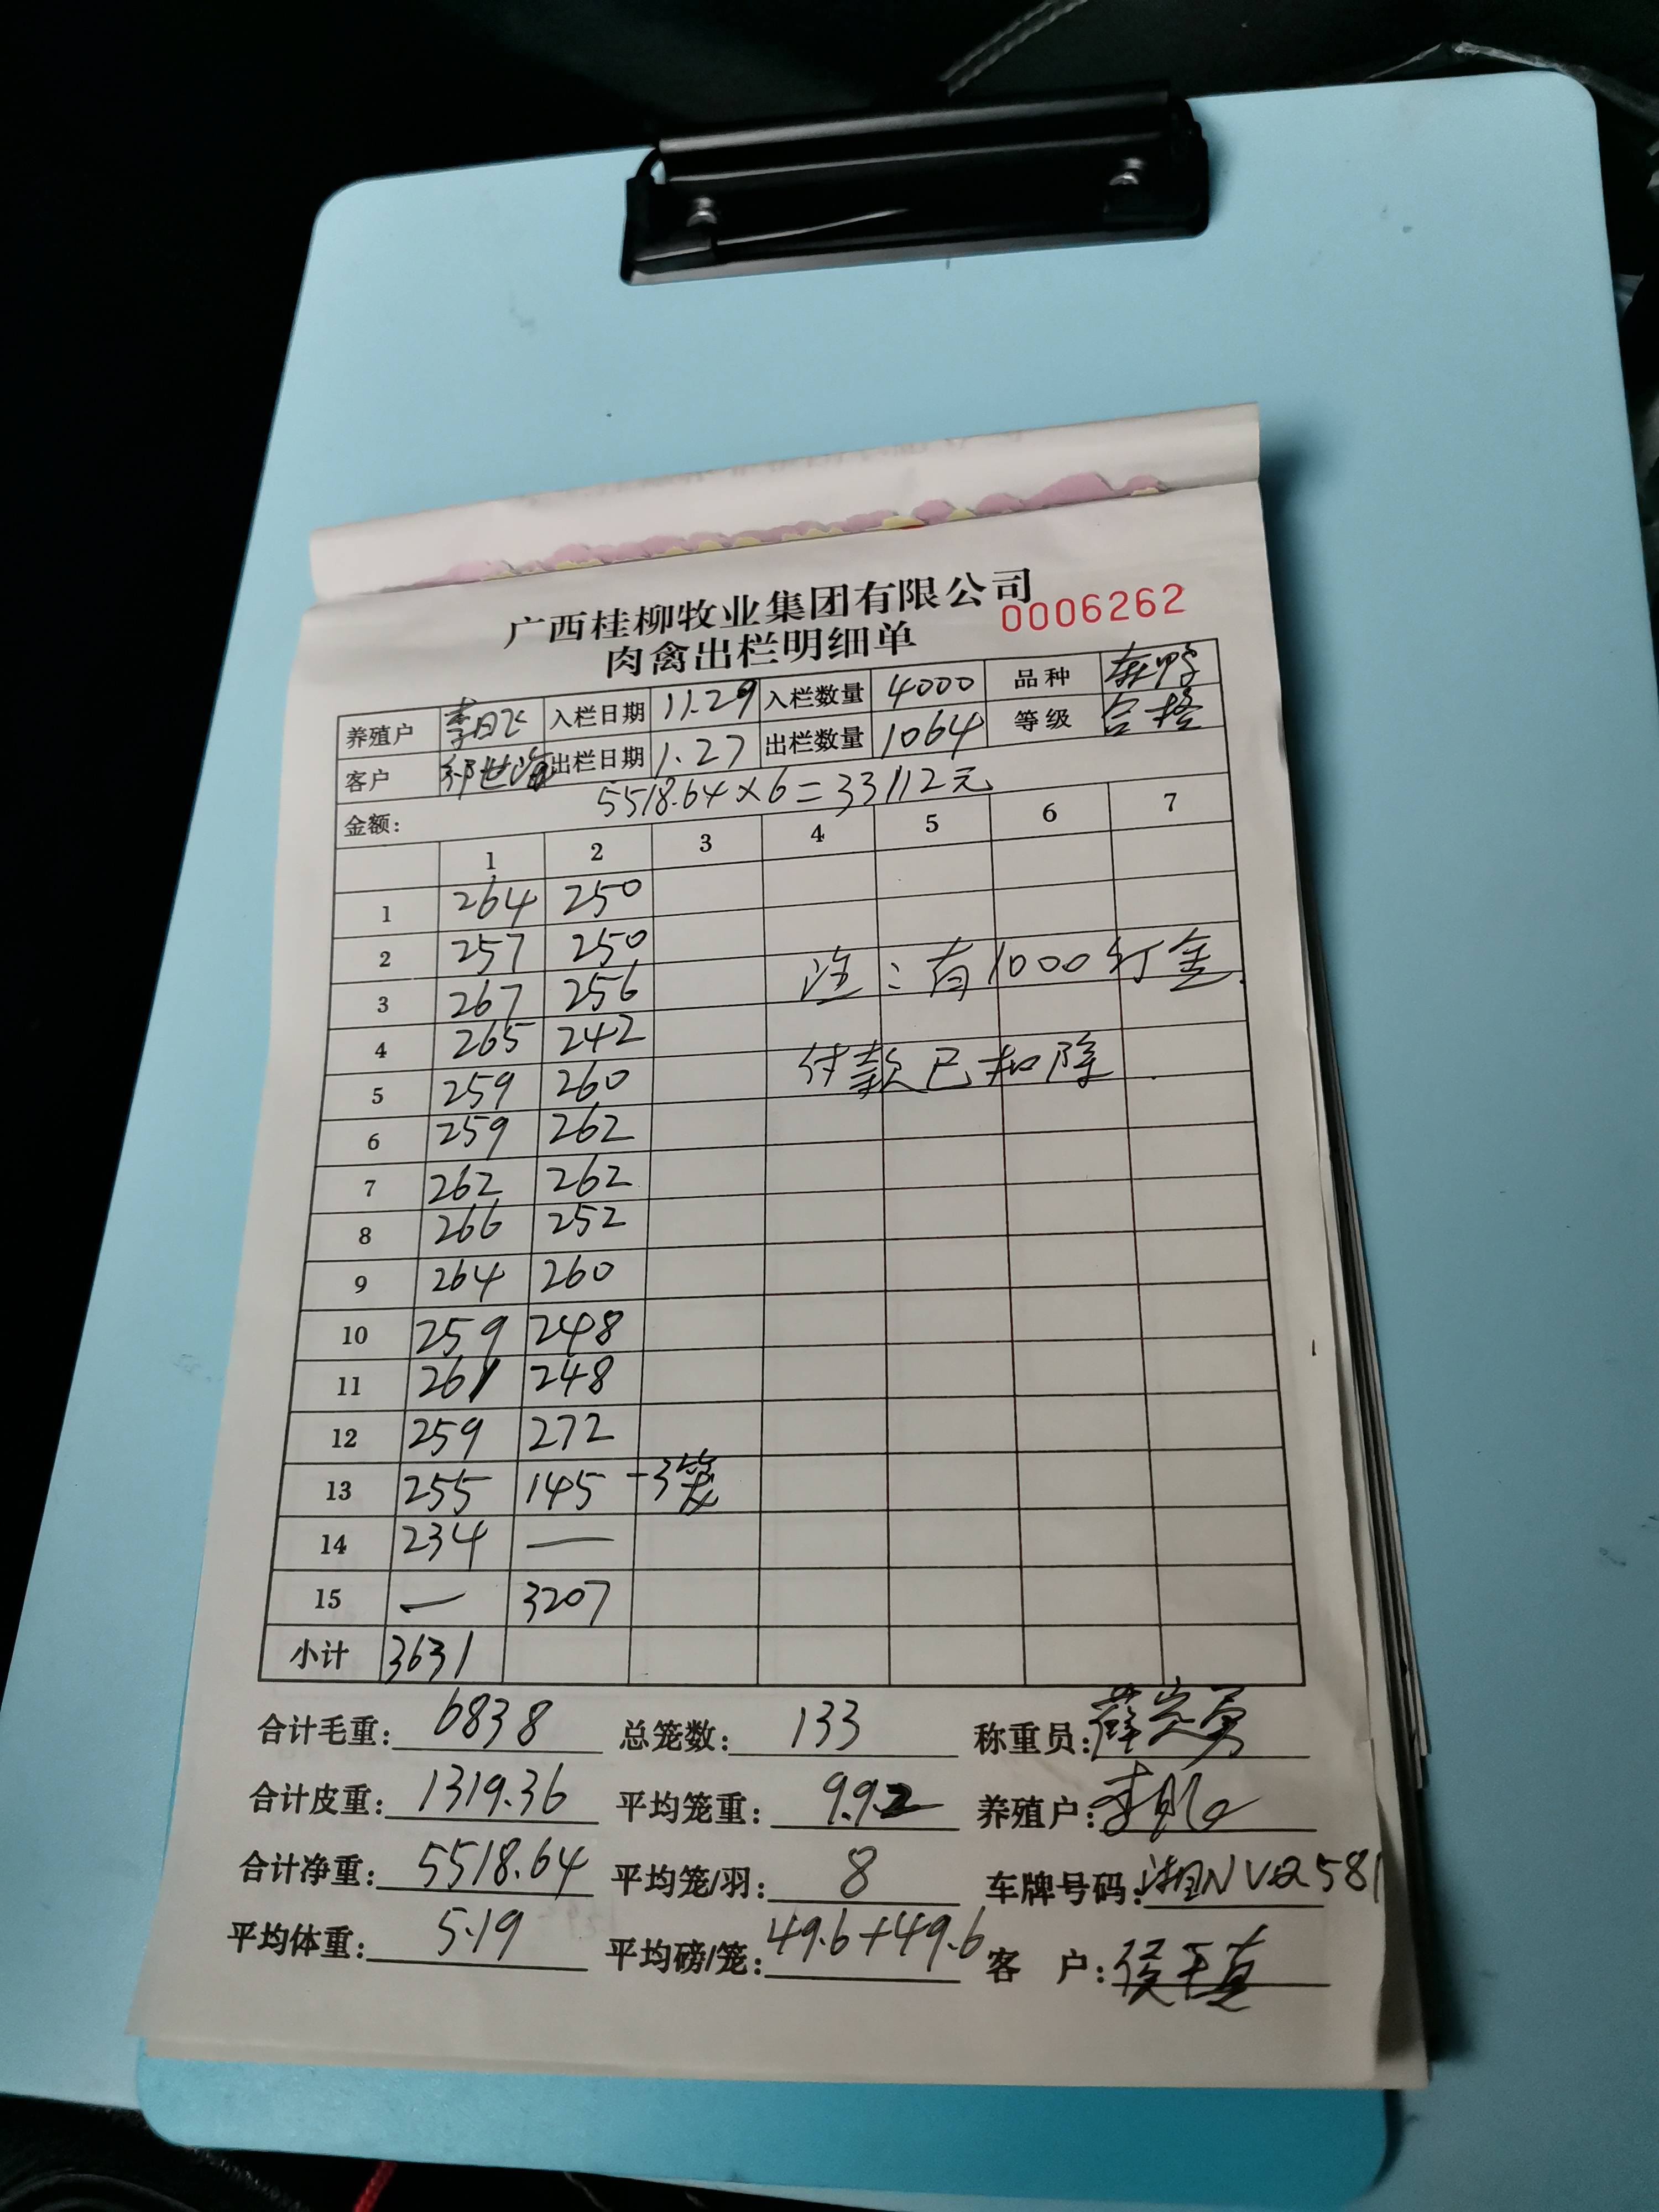 广西桂柳牧业集团有限公司
0006262
肉禽出栏明细单
养殖户 李日飞 入栏日期 11.29 入栏数量 4000 品种
客户 出栏日期 1.27 出栏数量 1064 等级 合格
金额: 5518.64×6=33112元
1 2 3 4 5 6 7
1 264 250
2 257 250
3 267 256
4 265 242
5 259 260
6 259 262
7 262 262
8 266 252
9 264 260
10 259 248
11 261 248
12 259 272
13 255 145 -3笼
14 234 —
15 — 3207
小计 3631
注:有1000订金.
付款已扣除.
合计毛重: 6838 总笼数: 133 称重员:
合计皮重: 1319.36 平均笼重: 9.92 养殖户:
合计净重: 5518.64 平均笼/羽: 8 车牌号码:
平均体重: 5.19 平均磅/笼: 49.6+49.6 客 户: